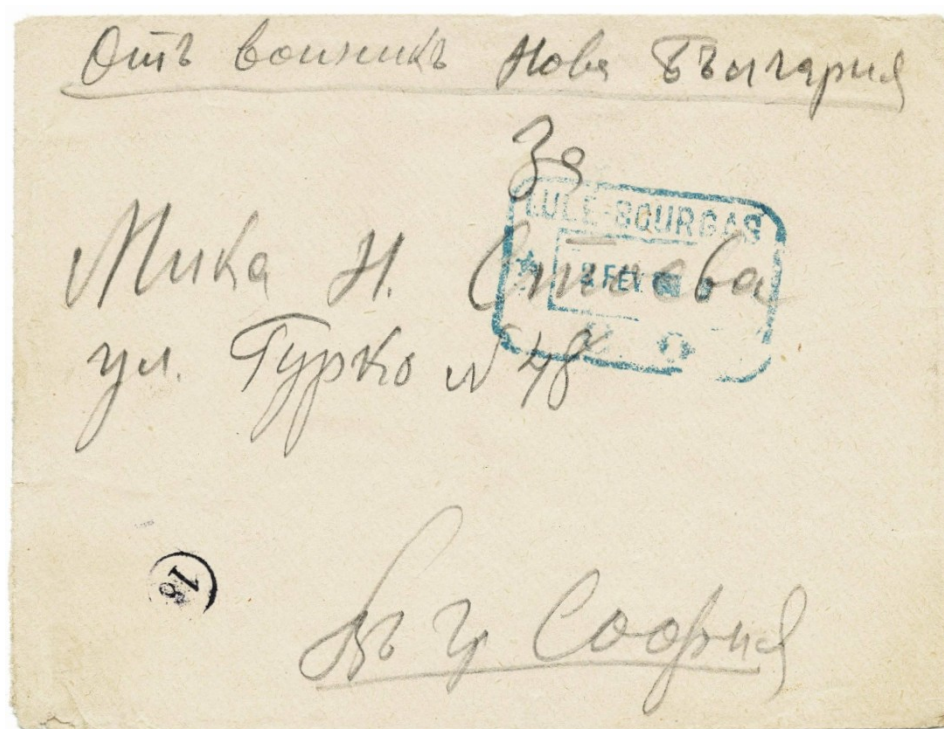 Отъ войникъ Нова България
За
LULÉ-BOURGAS
Мика Н.
FEV.
ул. Гурко № 48
18
Въ гр София